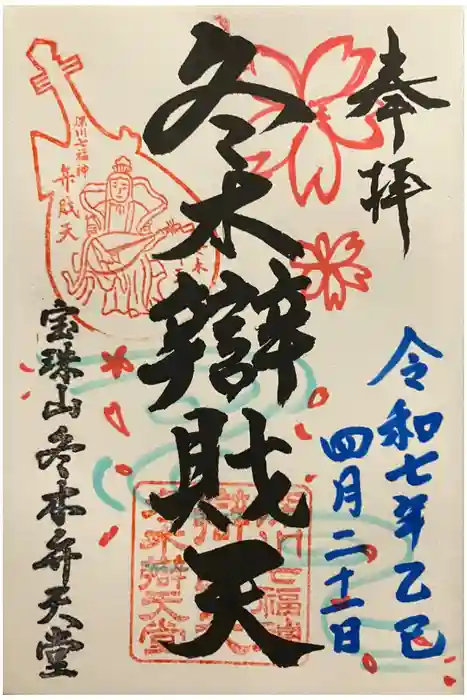 奉拝
令和七年乙巳
四月二十一日
冬木辯財天
深川七福神
弁財天
冬木
深川七福神
冬木辯天堂
宝珠山冬木弁天堂